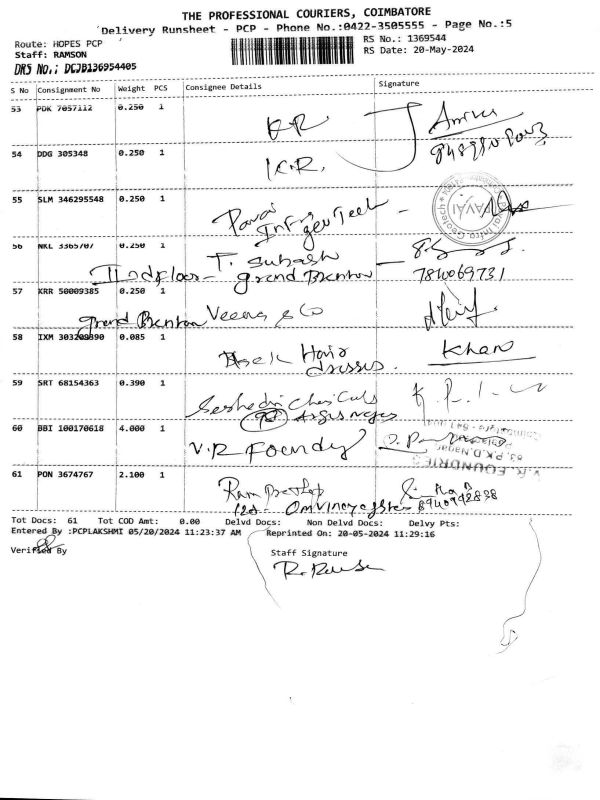 THE PROFESSIONAL COURIERS, COIMBATORE
Delivery Runsheet - PCP - Phone No.:0422-3505555 - Page No.:5
Route: HOPES PCP
RS No.: 1369544
Staff: RAMSON
RS Date: 20-May-2024
DRS No.: DCJB136954405
S No Consignment No Weight PCS Consignee Details Signature
53 PDK 7057112 0.250 1 K R
54 DDG 305348 0.250 1 K.R.
55 SLM 346295548 0.250 1 Pavai
Infra geo Tech
PAVAI
56 NKL 3365707 0.250 1 T. Subash
IInd floor - grand Brenton 7810069731
57 KRR 50009385 0.250 1
grand Brenton Veena & Co
58 IXM 303209890 0.085 1 Hair Khan
dresses.
59 SRT 68154363 0.390 1
60 BBI 100170618 4.000 1 V.R Foundry
V.R. FOUNDRIES
63, P.K.D.Nagar
61 PON 3674767 2.100 1 Ram
8940992838
Tot Docs: 61 Tot COD Amt: 0.00 Delvd Docs: Non Delvd Docs: Delvy Pts:
Entered By :PCPLAKSHMI 05/20/2024 11:23:37 AM Reprinted On: 20-05-2024 11:29:16
Verified By Staff Signature